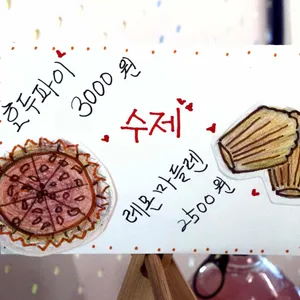 호두파이
3000원
수제
레몬마들렌
2500원